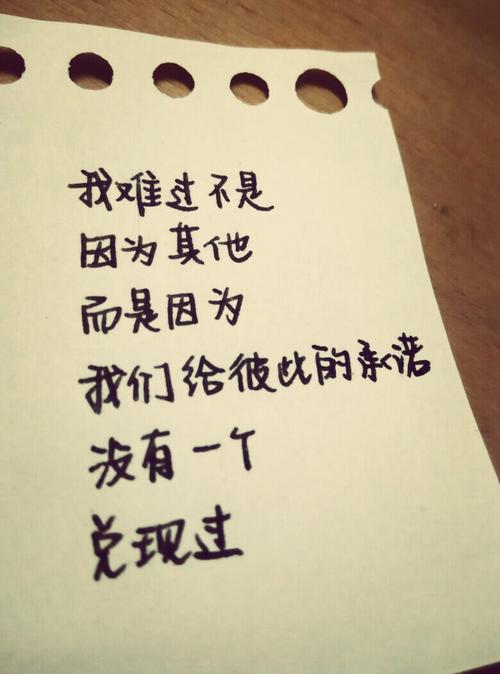 我难过不是
因为其他
而是因为
我们给彼此的承诺
没有一个
兑现过